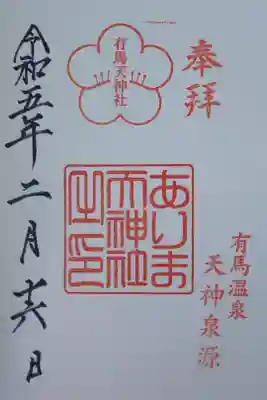 奉拝
有馬天神社
ありま
天神社
之印
有馬温泉
天神泉源
令和五年二月十六日